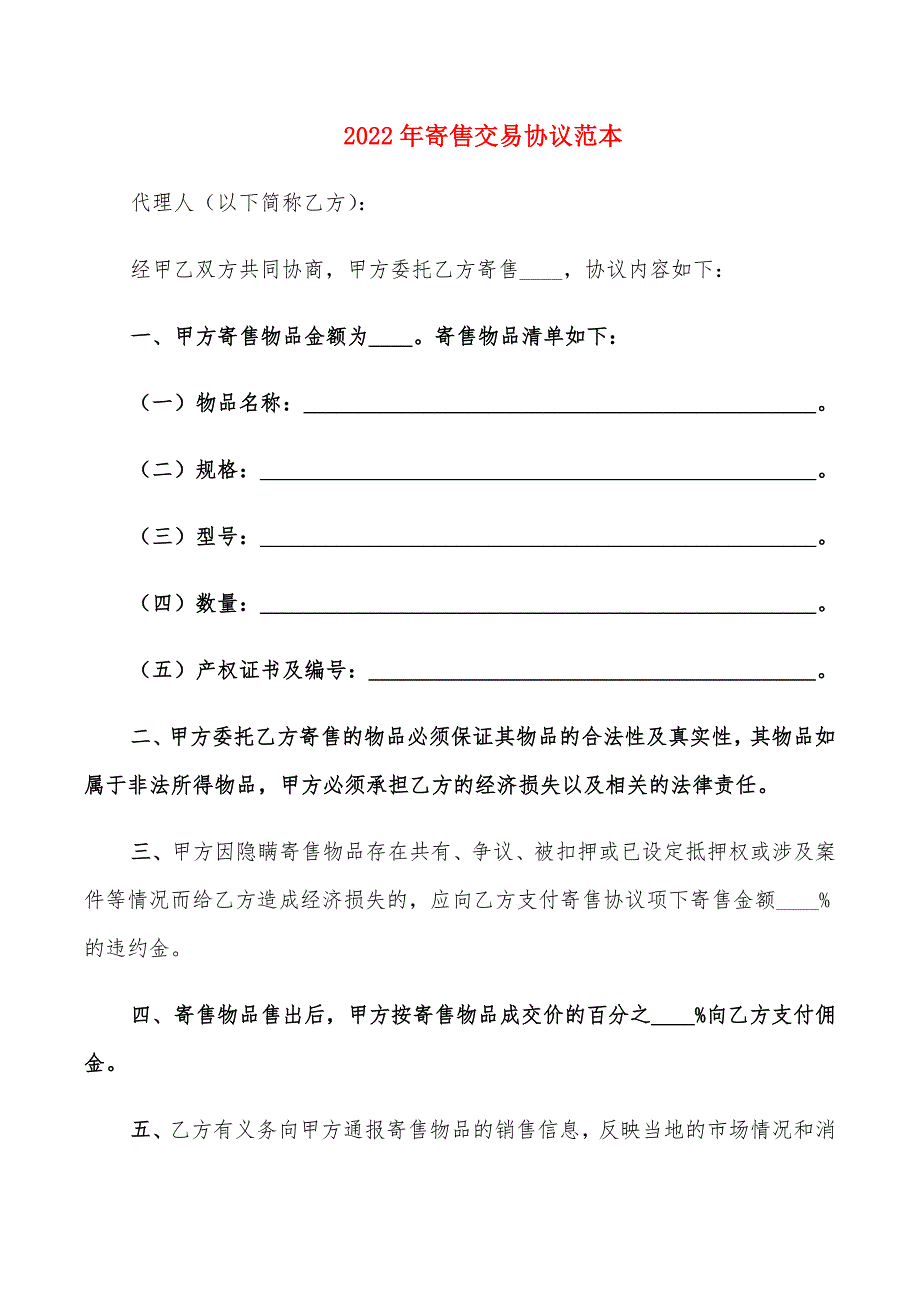 2022年寄售交易协议范本
代理人（以下简称乙方）：
经甲乙双方共同协商，甲方委托乙方寄售____，协议内容如下：
一、甲方寄售物品金额为____。寄售物品清单如下：
（一）物品名称：_______________________________________________。
（二）规格：___________________________________________________。
（三）型号：___________________________________________________。
（四）数量：___________________________________________________。
（五）产权证书及编号：_________________________________________。
二、甲方委托乙方寄售的物品必须保证其物品的合法性及真实性，其物品如
属于非法所得物品，甲方必须承担乙方的经济损失以及相关的法律责任。
三、甲方因隐瞒寄售物品存在共有、争议、被扣押或已设定抵押权或涉及案
件等情况而给乙方造成经济损失的，应向乙方支付寄售协议项下寄售金额____%
的违约金。
四、寄售物品售出后，甲方按寄售物品成交价的百分之____%向乙方支付佣
金。
五、乙方有义务向甲方通报寄售物品的销售信息，反映当地的市场情况和消